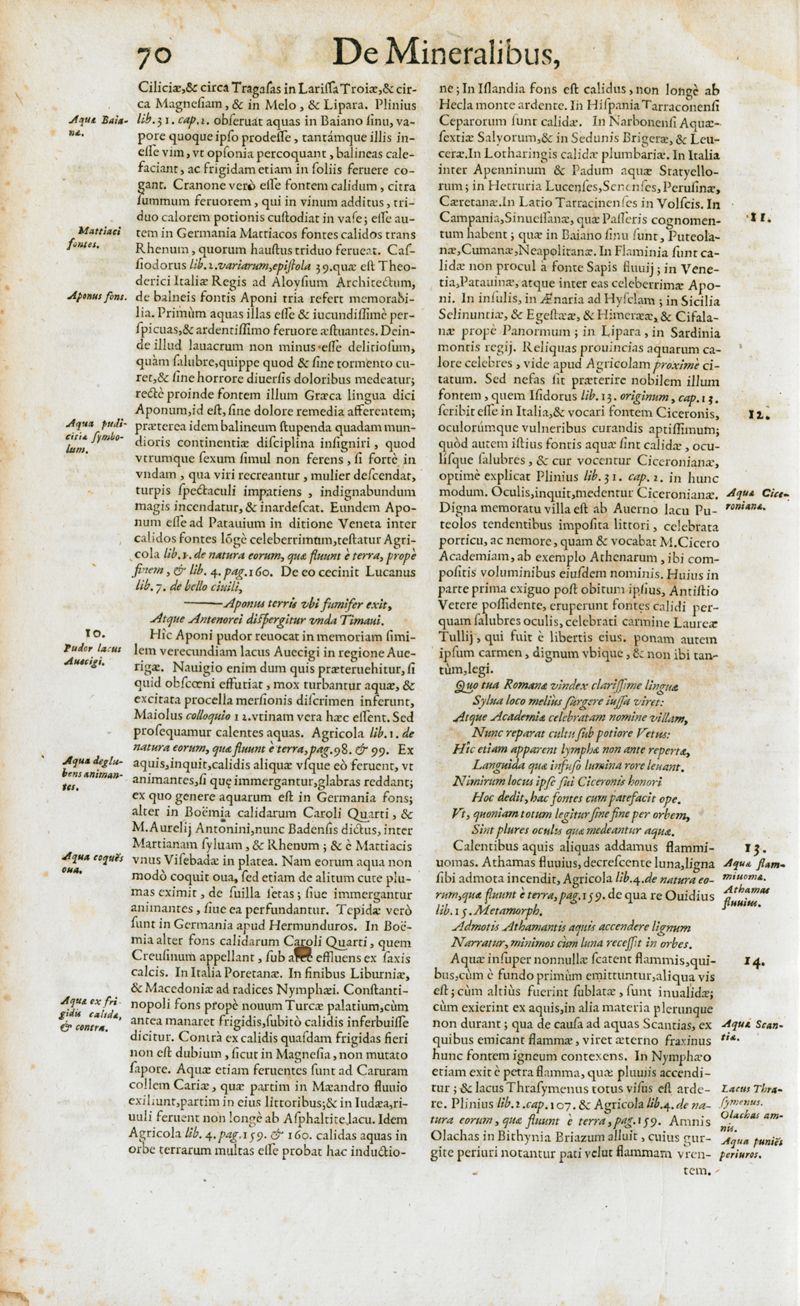 70 De Mineralibus,
Ciliciæ,& circa Tragaſas in Lariſſa Troiæ,& cir-
ca Magneſiam, & in Melo, & Lipara. Plinius
Aqua Baia-
na.
lib. 31. cap. 2. obſeruat aquas in Baiano ſinu, va-
pore quoque ipſo prodeſſe, tantámque illis in-
eſſe vim, vt opſonia percoquant, balineas cale-
faciant, ac frigidam etiam in ſoliis feruere co-
gant. Cranone verò eſſe fontem calidum, citra
ſummum feruorem, qui in vinum additus, tri-
duo calorem potionis cuſtodiat in vaſe; eſſe au-
Mattiaci
fontes.
tem in Germania Mattiacos fontes calidos trans
Rhenum, quorum hauſtus triduo ferueat. Caſ-
ſiodorus lib. 2. variarum, epiſtola 39. quæ eſt Theo-
derici Italiæ Regis ad Aloyſium Architectum,
Aponus fons.
de balneis fontis Aponi tria refert memorabi-
lia. Primùm aquas illas eſſe & iucundiſſimè per-
ſpicuas,& ardentiſſimo feruore æſtuantes. Dein-
de illud lauacrum non minus eſſe delitioſum,
quàm ſalubre,quippe quod & ſine tormento cu-
ret,& ſine horrore diuerſis doloribus medeatur;
rectè proinde fontem illum Græca lingua dici
Aponum,id eſt, ſine dolore remedia afferentem;
Aqua pudi-
citiæ ſymbo-
lum.
præterea idem balineum ſtupenda quadam mun-
dioris continentiæ diſciplina inſigniri, quod
vtrumque ſexum ſimul non ferens, ſi fortè in
vndam, qua viri recreantur, mulier deſcendat,
turpis ſpectaculi impatiens, indignabundum
magis incendatur, & inardeſcat. Eundem Apo-
num eſſe ad Patauium in ditione Veneta inter
calidos fontes lōgè celeberrimum,teſtatur Agri-
cola lib. 1. de natura eorum, quæ fluunt è terra, propè
finem, & lib. 4. pag. 160. De eo cecinit Lucanus
lib. 7. de bello ciuili,
———Aponus terris vbi fumifer exit,
Atque Antenorei diſpergitur vnda Timaui.
10.
Pudor lacus
Auecigi.
Hìc Aponi pudor reuocat in memoriam ſimi-
lem verecundiam lacus Auecigi in regione Aue-
rigæ. Nauigio enim dum quis præteruehitur, ſi
quid obſcœni effutiat, mox turbantur aquæ, &
excitata procella merſionis diſcrimen inferunt,
Maiolus colloquio 12. vtinam vera hæc eſſent. Sed
proſequamur calentes aquas. Agricola lib. 1. de
natura eorum, quæ fluunt è terra, pag. 98. & 99. Ex
Aqua deglu-
bens animan-
tes.
aquis,inquit,calidis aliquæ vſque eò feruent, vt
animantes,ſi quę immergantur,glabras reddant;
ex quo genere aquarum eſt in Germania fons;
alter in Boëmia calidarum Caroli Quarti, &
M. Aurelij Antonini,nunc Badenſis dictus,inter
Martianam ſyluam, & Rhenum; & è Mattiacis
Aqua coquēs
oua.
vnus Viſebadæ in platea. Nam eorum aqua non
modò coquit oua, ſed etiam de alitum cute plu-
mas eximit, de ſuilla ſetas; ſiue immergantur
animantes, ſiue ea perfundantur. Tepidæ verò
ſunt in Germania apud Hermunduros. In Boë-
mia alter fons calidarum Caroli Quarti, quem
Creuſinum appellant, ſub effluens ex ſaxis
calcis. In Italia Poretanæ. In finibus Liburniæ,
& Macedoniæ ad radices Nymphæi. Conſtanti-
Aqua ex fri
gidis calida,
& contra.
nopoli fons propè nouum Turcæ palatium,cùm
antea manaret frigidis,ſubitò calidis inferbuiſſe
dicitur. Contrà ex calidis quaſdam frigidas fieri
non eſt dubium, ſicut in Magneſia, non mutato
ſapore. Aquæ etiam feruentes ſunt ad Caruram
collem Cariæ, quæ partim in Mæandro fluuio
exiliunt,partim in eius littoribus;& in Iudæa,ri-
uuli feruent non longè ab Aſphaltite lacu. Idem
Agricola lib. 4. pag. 159. & 160. calidas aquas in
orbe terrarum multas eſſe probat hac inductio-
ne; In Iſlandia fons eſt calidus, non longè ab
Hecla monte ardente. In Hiſpania Tarraconenſi
Ceparorum ſunt calidæ. In Narbonenſi Aquæ-
ſextiæ Salyorum,& in Sedunis Brigeræ, & Leu-
ceræ.In Lotharingis calidæ plumbariæ. In Italia
inter Apenninum & Padum aquæ Statyello-
rum; in Hetruria Lucenſes,Senenſes,Peruſinæ,
Cæretanæ.In Latio Tarracinenſes in Volſcis. In
11.
Campania,Sinueſſanæ, quæ Paſſeris cognomen-
tum habent; quæ in Baiano ſinu ſunt, Puteola-
næ,Cumanæ,Neapolitanæ. In Flaminia ſunt ca-
lidæ non procul à fonte Sapis fluuij; in Vene-
tia,Patauinæ, atque inter eas celeberrimæ Apo-
ni. In inſulis, in Ænaria ad Hyſclam; in Sicilia
Selinuntiæ, & Egeſtææ, & Himerææ, & Cifala-
næ propè Panormum; in Lipara, in Sardinia
montis regij. Reliquas prouincias aquarum ca-
lore celebres, vide apud Agricolam proximè ci-
tatum. Sed nefas ſit præterire nobilem illum
fontem, quem Iſidorus lib. 13. originum, cap. 13.
12.
ſcribit eſſe in Italia,& vocari fontem Ciceronis,
oculorúmque vulneribus curandis aptiſſimum;
quòd autem iſtius fontis aquæ ſint calidæ, ocu-
liſque ſalubres, & cur vocentur Ciceronianæ,
optimè explicat Plinius lib. 31. cap. 2. in hunc
modum. Oculis,inquit,medentur Ciceronianæ.
Aqua Cice-
roniana.
Digna memoratu villa eſt ab Auerno lacu Pu-
teolos tendentibus impoſita littori, celebrata
porticu, ac nemore, quam & vocabat M. Cicero
Academiam, ab exemplo Athenarum, ibi com-
poſitis voluminibus eiuſdem nominis. Huius in
parte prima exiguo poſt obitum ipſius, Antiſtio
Vetere poſſidente, eruperunt fontes calidi per-
quam ſalubres oculis, celebrati carmine Laureæ
Tullij, qui fuit è libertis eius. ponam autem
ipſum carmen, dignum vbique, & non ibi tan-
tùm,legi.
Quo tua Romanæ vindex clariſſime linguæ
Sylua loco melius ſurgere iuſſa viret:
Atque Academiæ celebratam nomine villam,
Nunc reparat cultu ſub potiore Vetus:
Hîc etiam apparent lymphæ non ante repertæ,
Languida quæ infuſo lumina rore leuant.
Nimirum locus ipſe ſui Ciceronis honori
Hoc dedit, hac fontes cum patefacit ope.
Vt, quoniam totum legitur ſine fine per orbem,
Sint plures oculis quæ medeantur aquæ.
13.
Calentibus aquis aliquas addamus flammi-
uomas. Athamas fluuius,decreſcente luna,ligna
Aqua flam-
miuoma.
ſibi admota incendit, Agricola lib. 4. de natura eo-
rum, quæ fluunt è terra, pag. 159. de qua re Ouidius
Athamas
fluuius.
lib. 15. Metamorph.
Admotis Athamantis aquis accendere lignum
Narratur, minimos cùm luna receſſit in orbes.
14.
Aquæ inſuper nonnullæ ſcatent flammis,qui-
bus,cùm è fundo primùm emittuntur,aliqua vis
eſt; cùm altiùs fuerint ſublatæ, ſunt inualidæ;
cùm exierint ex aquis,in alia materia plerunque
non durant; qua de cauſa ad aquas Scantias, ex
Aqua Scan-
tiæ.
quibus emicant flammæ, viret æterno fraxinus
hunc fontem igneum contexens. In Nymphæo
etiam exit è petra flamma, quæ pluuiis accendi-
tur; & lacus Thraſymenus totus viſus eſt arde-
Lacus Thra-
ſymenus.
re. Plinius lib. 2. cap. 107. & Agricola lib. 4. de na-
tura eorum, quæ fluunt è terra, pag. 159. Amnis
Olachas am-
nis.
Olachas in Bithynia Briazum alluit, cuius gur-
Aqua puniēs
periuros.
gite periuri notantur pati velut flammam vren-
tem.